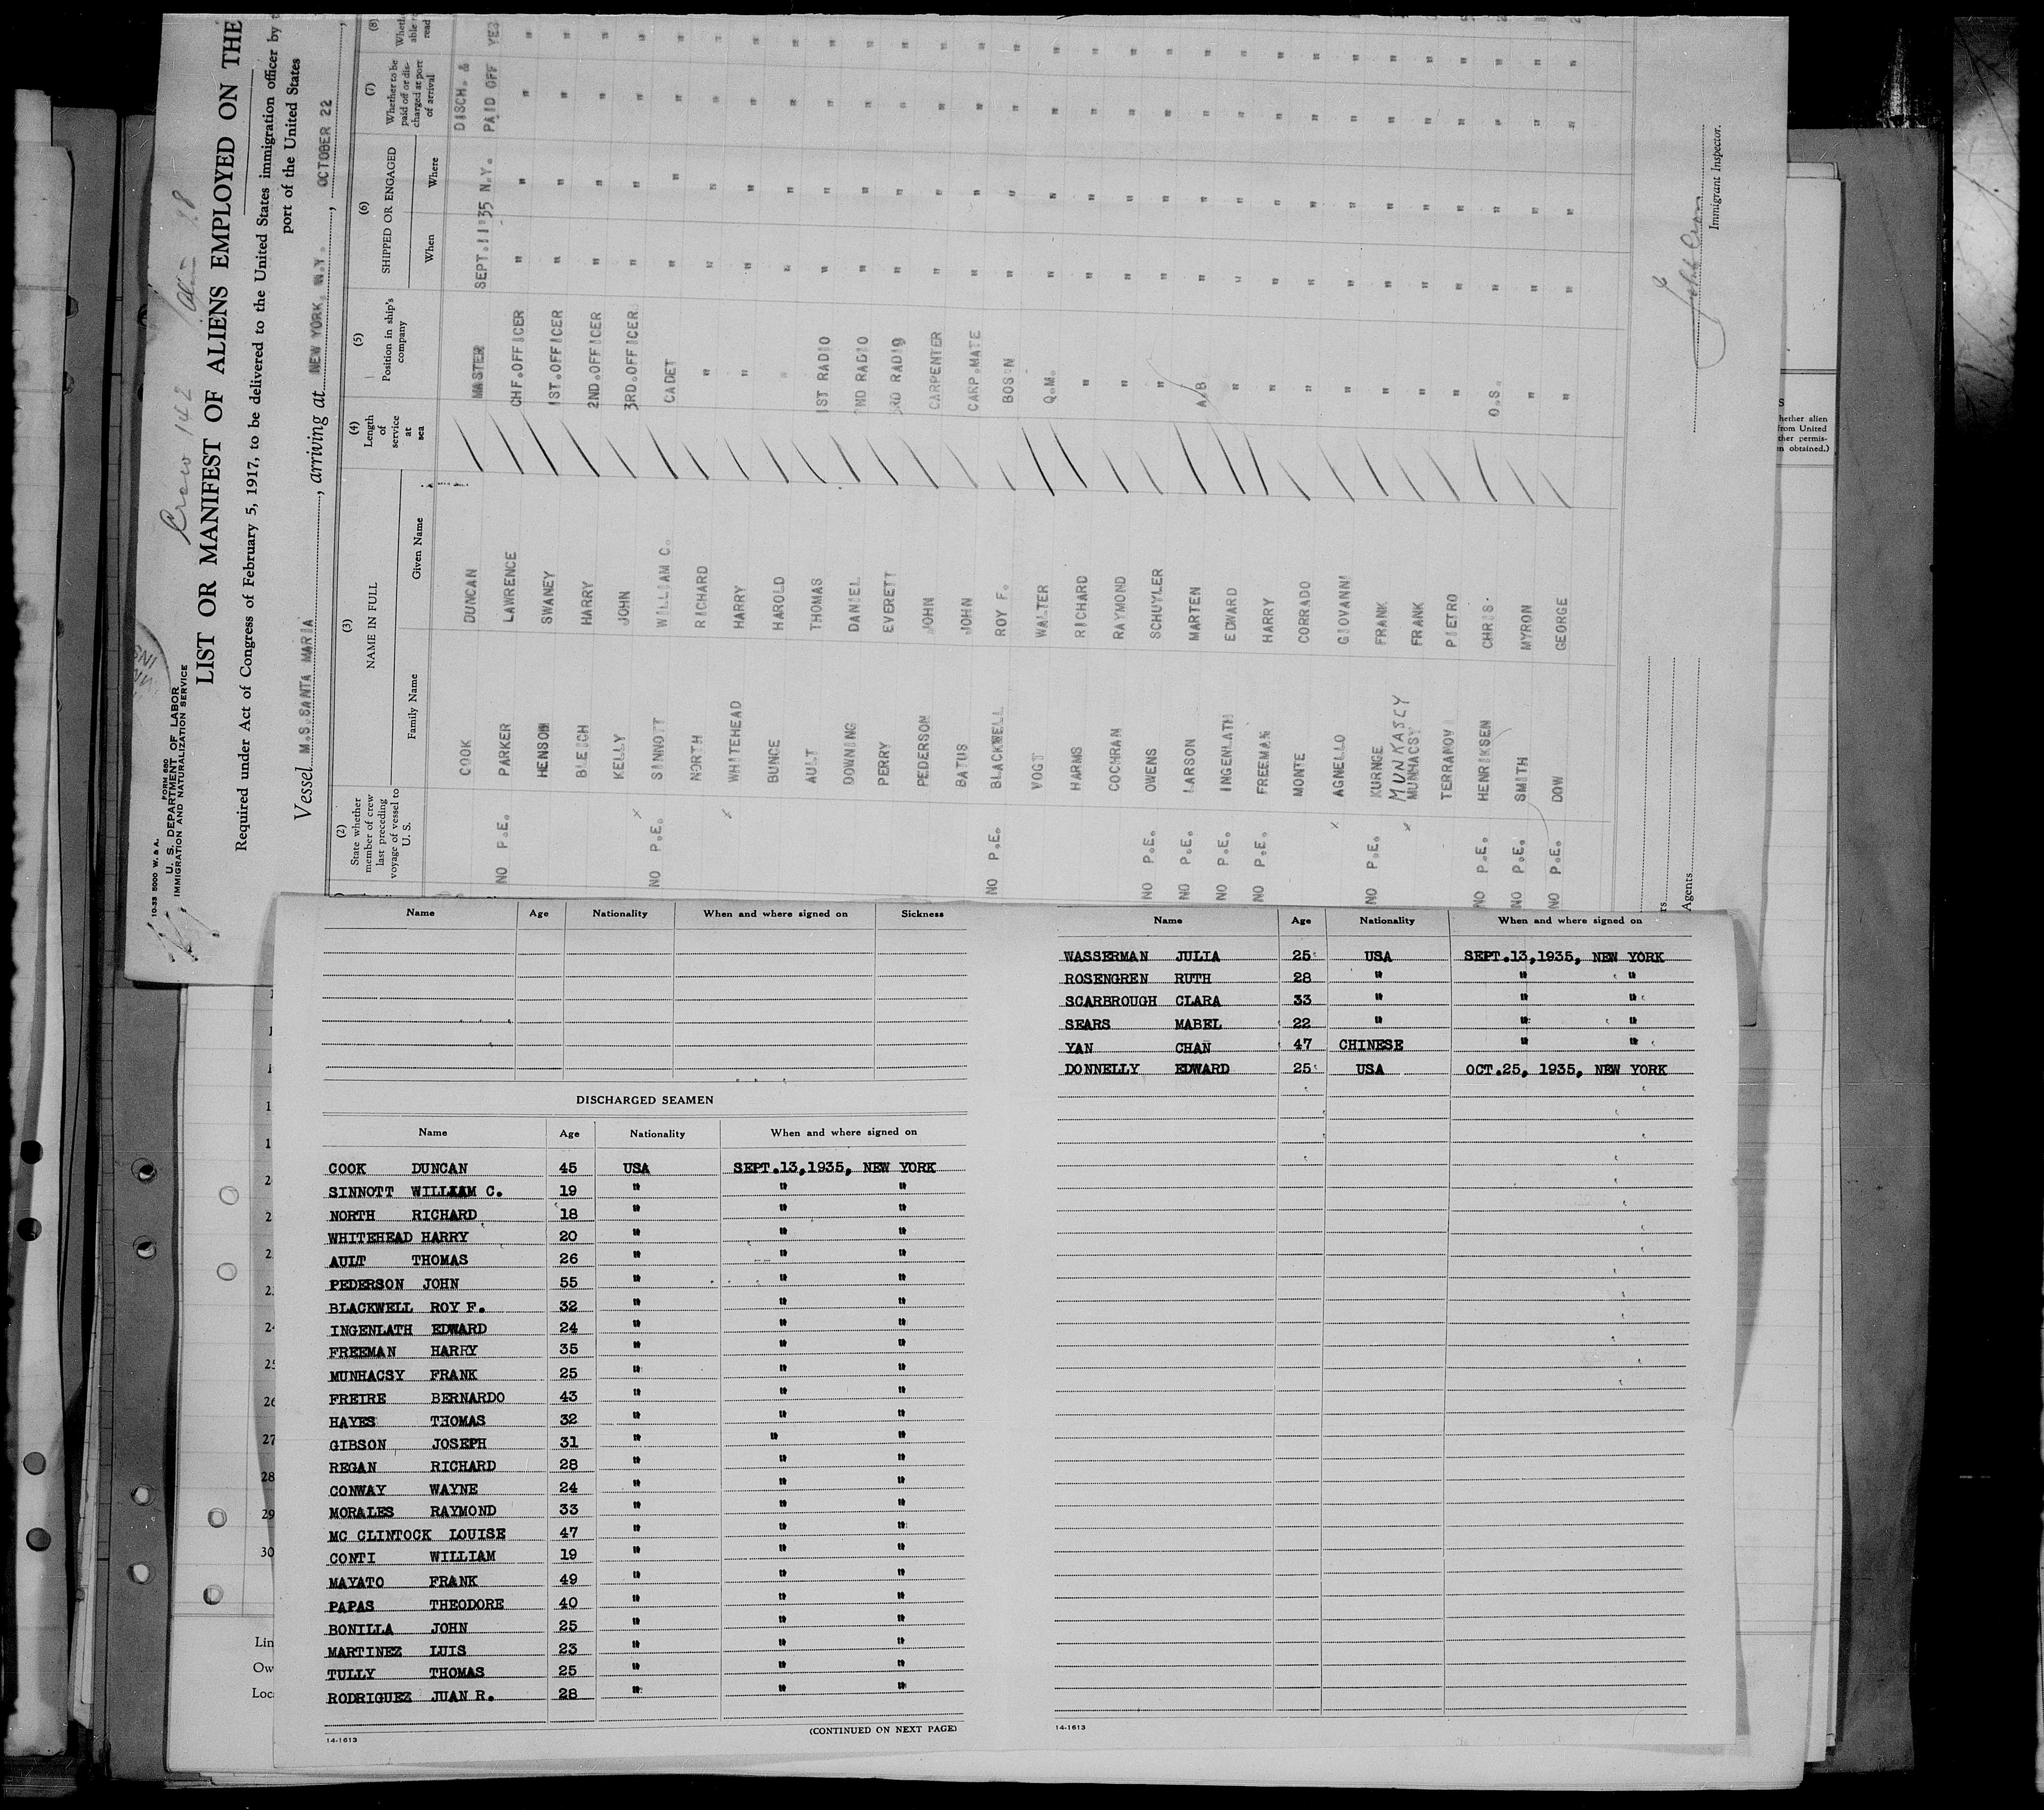 10-33 5000 W. & A. FORM 680
U. S. DEPARTMENT OF LABOR
IMMIGRATION AND NATURALIZATION SERVICE
Crew 142
LIST OR MANIFEST OF ALIENS EMPLOYED ON THE
Required under Act of Congress of February 5, 1917, to be delivered to the United States immigration officer by
port of the United States
Vessel M.S. SANTA MARIA, arriving at NEW YORK, N.Y., OCTOBER 22
(2) State whether member of crew last preceding voyage of vessel to U. S.
(3) NAME IN FULL
Family Name Given Name
(4) Length of service at sea
(5) Position in ship's company
(6) SHIPPED OR ENGAGED
When Where
(7) Whether to be paid off or discharged at port of arrival
(8) read
COOK DUNCAN MASTER SEPT.11"35 N.Y. DISCH. & PAID OFF YES
NO P.E. PARKER LAWRENCE CHF.OFFICER " " " "
HENSON SWANEY 1ST.OFFICER " " " "
BLEICH HARRY 2ND.OFFICER " " " "
KELLY JOHN 3RD.OFFICER " " " "
NO P.E. x SINNOTT WILLIAM C. CADET " " " "
NORTH RICHARD " " " " "
x WHITEHEAD HARRY " " " " "
BUNCE HAROLD " " " " "
AULT THOMAS 1ST RADIO " " " "
DOWNING DANIEL 2ND RADIO " " " "
PERRY EVERETT 3RD RADIO " " " "
PEDERSON JOHN CARPENTER " " " "
BATUS JOHN CARP.MATE " " " "
NO P.E. BLACKWELL ROY F. BOS'N " " " "
VOGT WALTER Q.M. " " " "
HARMS RICHARD " " " " "
COCHRAN RAYMOND " " " " "
NO P.E. OWENS SCHUYLER " " " " "
NO P.E. LARSON MARTEN A.B. " " " "
NO P.E. INGENLATH EDWARD " " " " "
NO P.E. FREEMAN HARRY " " " " "
MONTE CORRADO " " " " "
x AGNELLO GIOVANNI " " " " "
NO P.E. KURNGE FRANK " " " " "
MUNKASCY
x MUNHACSY FRANK " " " " "
TERRANOVA PIETRO " " " " "
NO P.E. HENRIKSEN CHRIS. O.S. " " " "
NO P.E. SMITH MYRON " " " " "
NO P.E. DOW GEORGE " " " " "
Immigrant Inspector.
Agents
S
hether alien
from United
ther permis-
n obtained.)
Name Age Nationality When and where signed on Sickness
DISCHARGED SEAMEN
Name Age Nationality When and where signed on
COOK DUNCAN 45 USA SEPT.13,1935, NEW YORK
SINNOTT WILLIAM C. 19 " " "
NORTH RICHARD 18 " " "
WHITEHEAD HARRY 20 " " "
AULT THOMAS 26 " " "
PEDERSON JOHN 55 " " "
BLACKWELL ROY F. 32 " " "
INGENLATH EDWARD 24 " " "
FREEMAN HARRY 35 " " "
MUNHACSY FRANK 25 " " "
FREIRE BERNARDO 43 " " "
HAYES THOMAS 32 " " "
GIBSON JOSEPH 31 " " "
REGAN RICHARD 28 " " "
CONWAY WAYNE 24 " " "
MORALES RAYMOND 33 " " "
MC CLINTOCK LOUISE 47 " " "
CONTI WILLIAM 19 " " "
MAYATO FRANK 49 " " "
PAPAS THEODORE 40 " " "
BONILLA JOHN 25 " " "
MARTINEZ LUIS 23 " " "
TULLY THOMAS 25 " " "
RODRIGUEZ JUAN R. 28 " " "
(CONTINUED ON NEXT PAGE)
14-1613
Name Age Nationality When and where signed on
WASSERMAN JULIA 25 USA SEPT.13,1935, NEW YORK
ROSENGREN RUTH 28 " " "
SCARBROUGH CLARA 33 " " "
SEARS MABEL 22 " " "
YAN CHAN 47 CHINESE " "
DONNELLY EDWARD 25 USA OCT.25, 1935, NEW YORK
14-1613
24
25
26
27
28
29
30
Lin
Ow
Loc